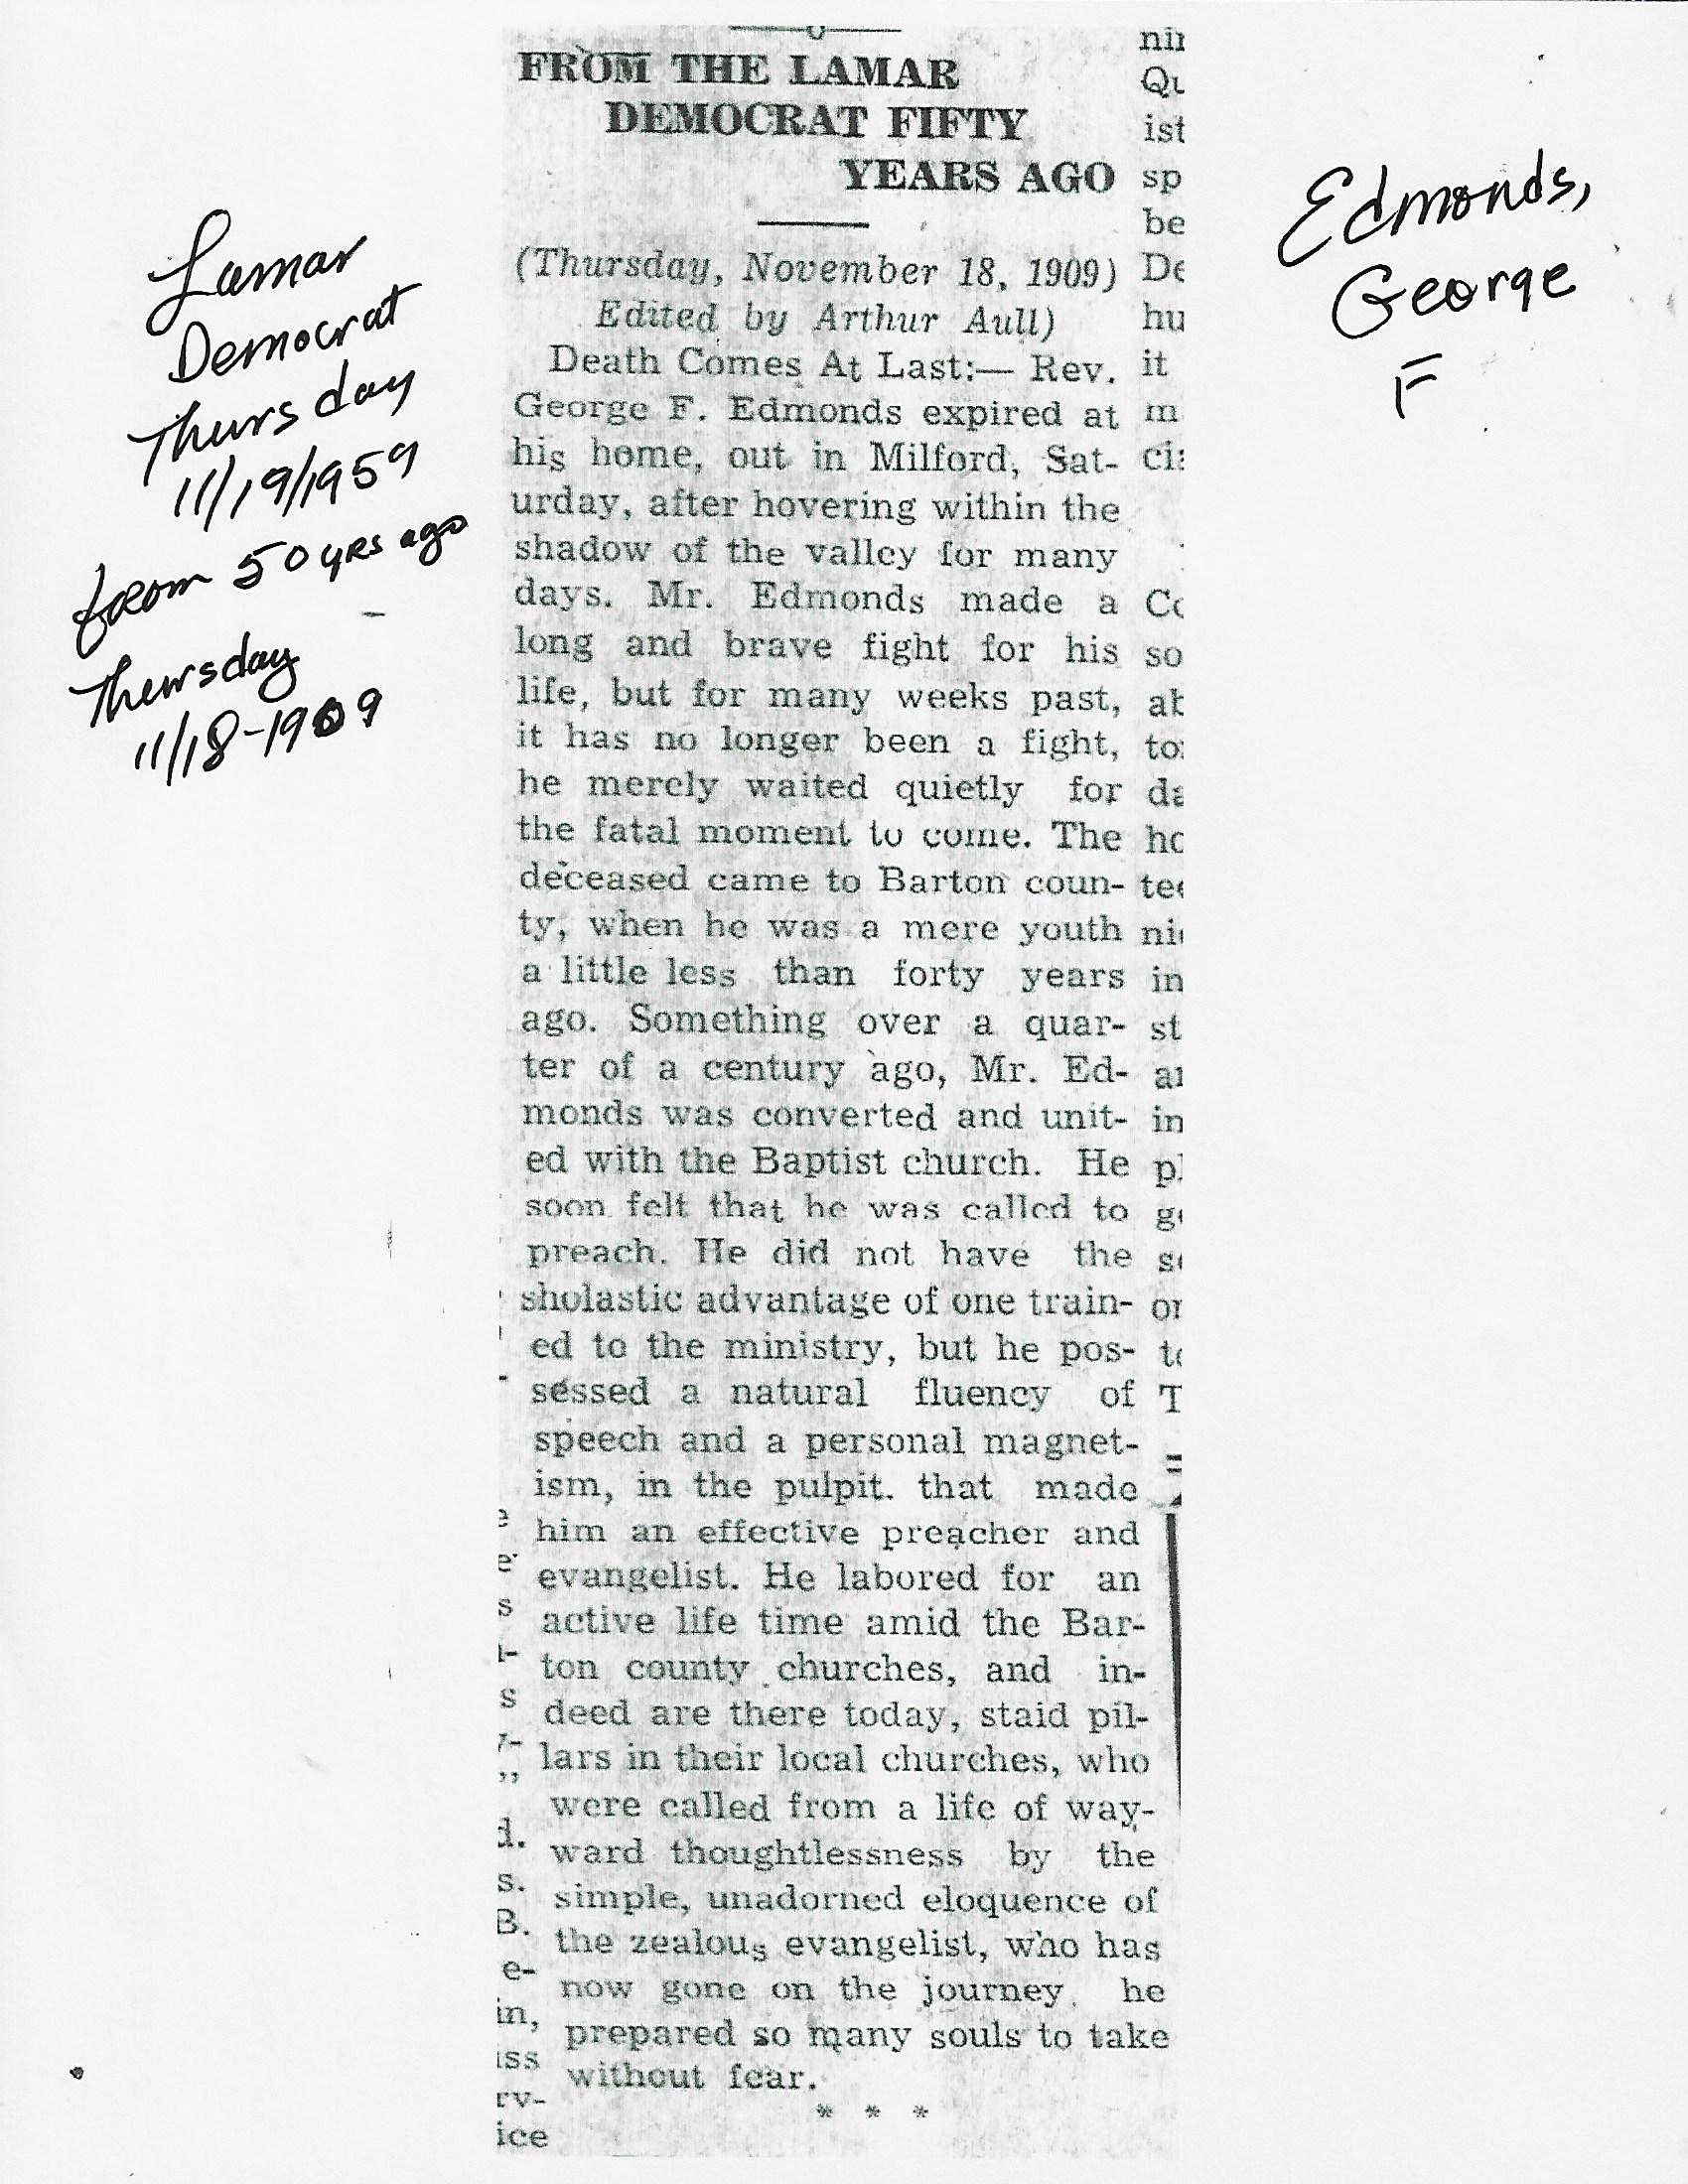 FROM THE LAMAR
DEMOCRAT FIFTY
YEARS AGO
(Thursday, November 18, 1909)
Edited by Arthur Aull)
Death Comes At Last:— Rev.
George F. Edmonds expired at
his home, out in Milford, Sat-
urday, after hovering within the
shadow of the valley for many
days. Mr. Edmonds made a
long and brave fight for his
life, but for many weeks past,
it has no longer been a fight,
he merely waited quietly for
the fatal moment to come. The
deceased came to Barton coun-
ty, when he was a mere youth
a little less than forty years
ago. Something over a quar-
ter of a century ago, Mr. Ed-
monds was converted and unit-
ed with the Baptist church. He
soon felt that he was called to
preach. He did not have the
sholastic advantage of one train-
ed to the ministry, but he pos-
sessed a natural fluency of
speech and a personal magnet-
ism, in the pulpit. that made
him an effective preacher and
evangelist. He labored for an
active life time amid the Bar-
ton county churches, and in-
deed are there today, staid pil-
lars in their local churches, who
were called from a life of way-
ward thoughtlessness by the
simple, unadorned eloquence of
the zealous evangelist, who has
now gone on the journey he
prepared so many souls to take
without fear.
* * *
Lamar
Democrat
Thursday
11/19/1959
from 50 yrs ago
Thursday
11/18-1909
Edmonds,
George
F